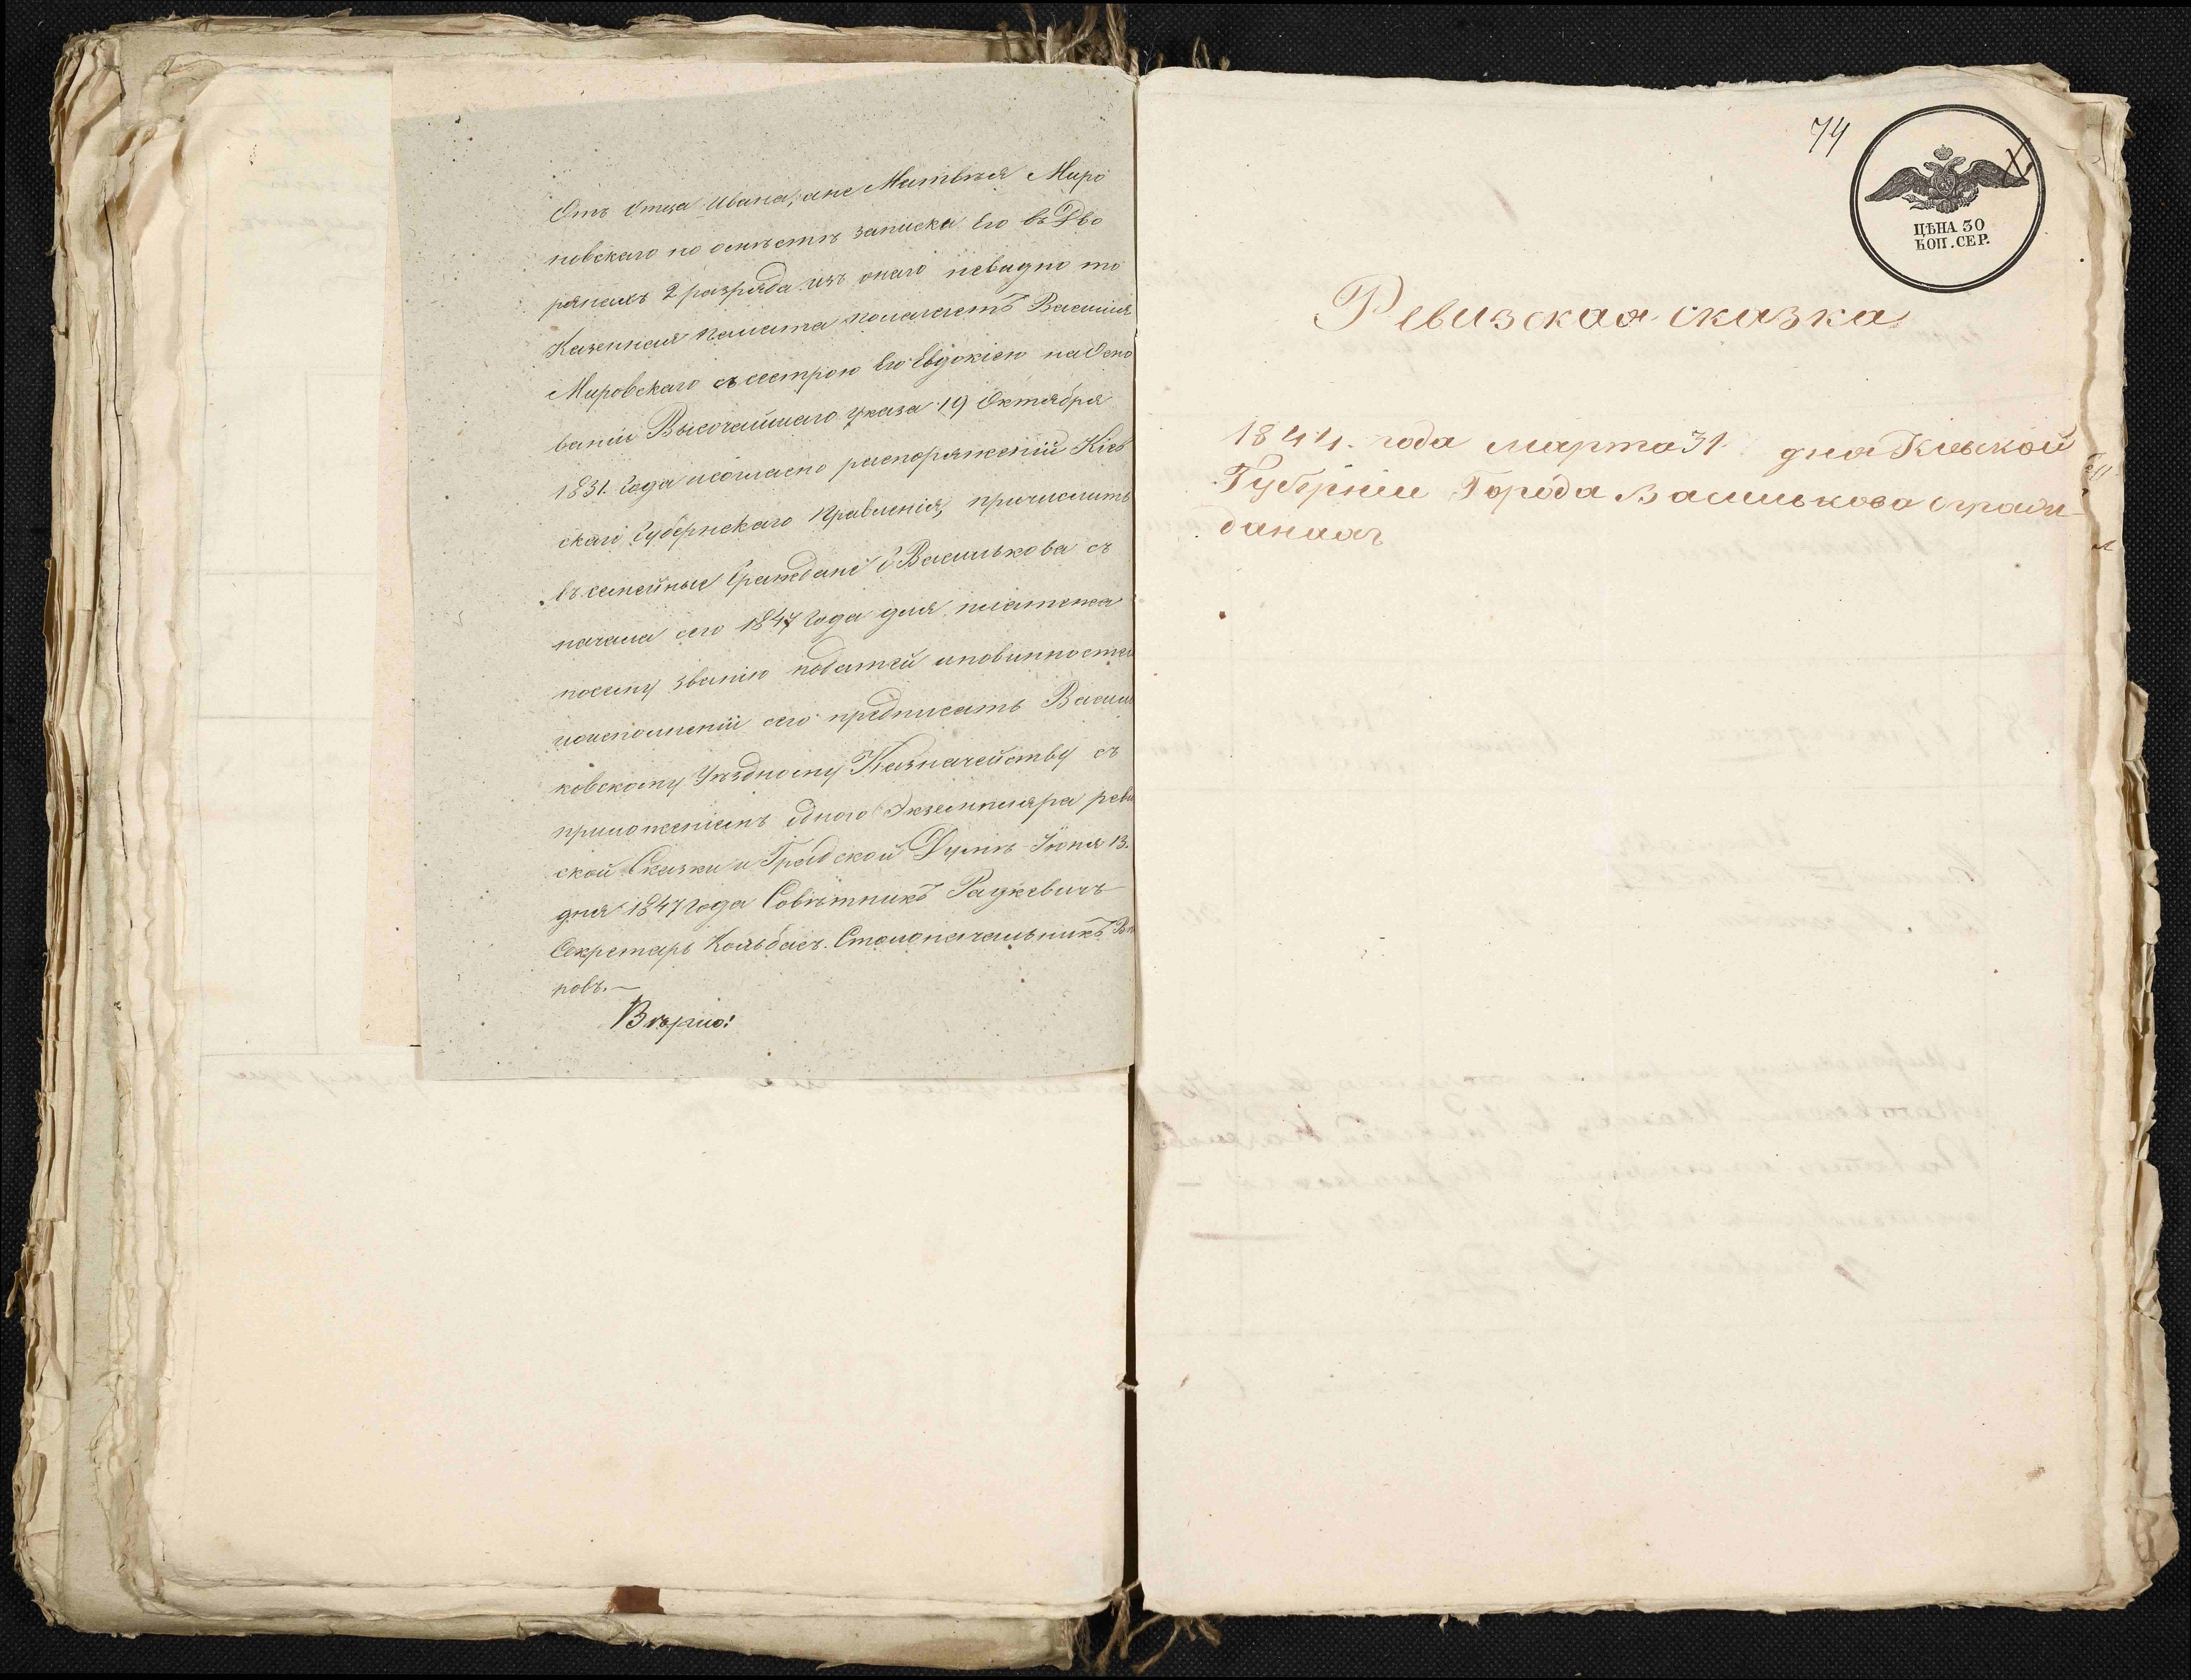 Отъ Отца Ивана, ане Матвѣя Миро
новскаго по осмѣстѣ записка Его въ Дво
рянахъ 2 разряда изъ онаго невидно то
Казенная Палата полагаетъ Василія
Мировскаго съ сестрою Его Евдокіею на Осно
ваніи Высочайшаго указа 19 Октября
1831. Года исогласно распоряженій Кіев
скаго Губернскаго Правленія, причислить
въ семейные Граждане Г. Василькова съ
начала сего 1847 Года для платежа
посему званію податей иповинностей
иоисполненіи сего предписать Василь
ковскому Уѣздному Казначейству съ
приложеніемъ одного Экземпляра реви
ской Сказки и Градской Думѣ Іюня 13.
дня 1847 года Совѣтникъ Рацкевичъ
Секретарь Кольбасъ. Столоначальникъ
новъ.—
Вѣрно:
74
ЦѢНА 30
КОП. СЕР.
Ревизская сказка
1844. года марта 31. дня Кіевской
Губерніи Города Василькова о граж-
данахъ